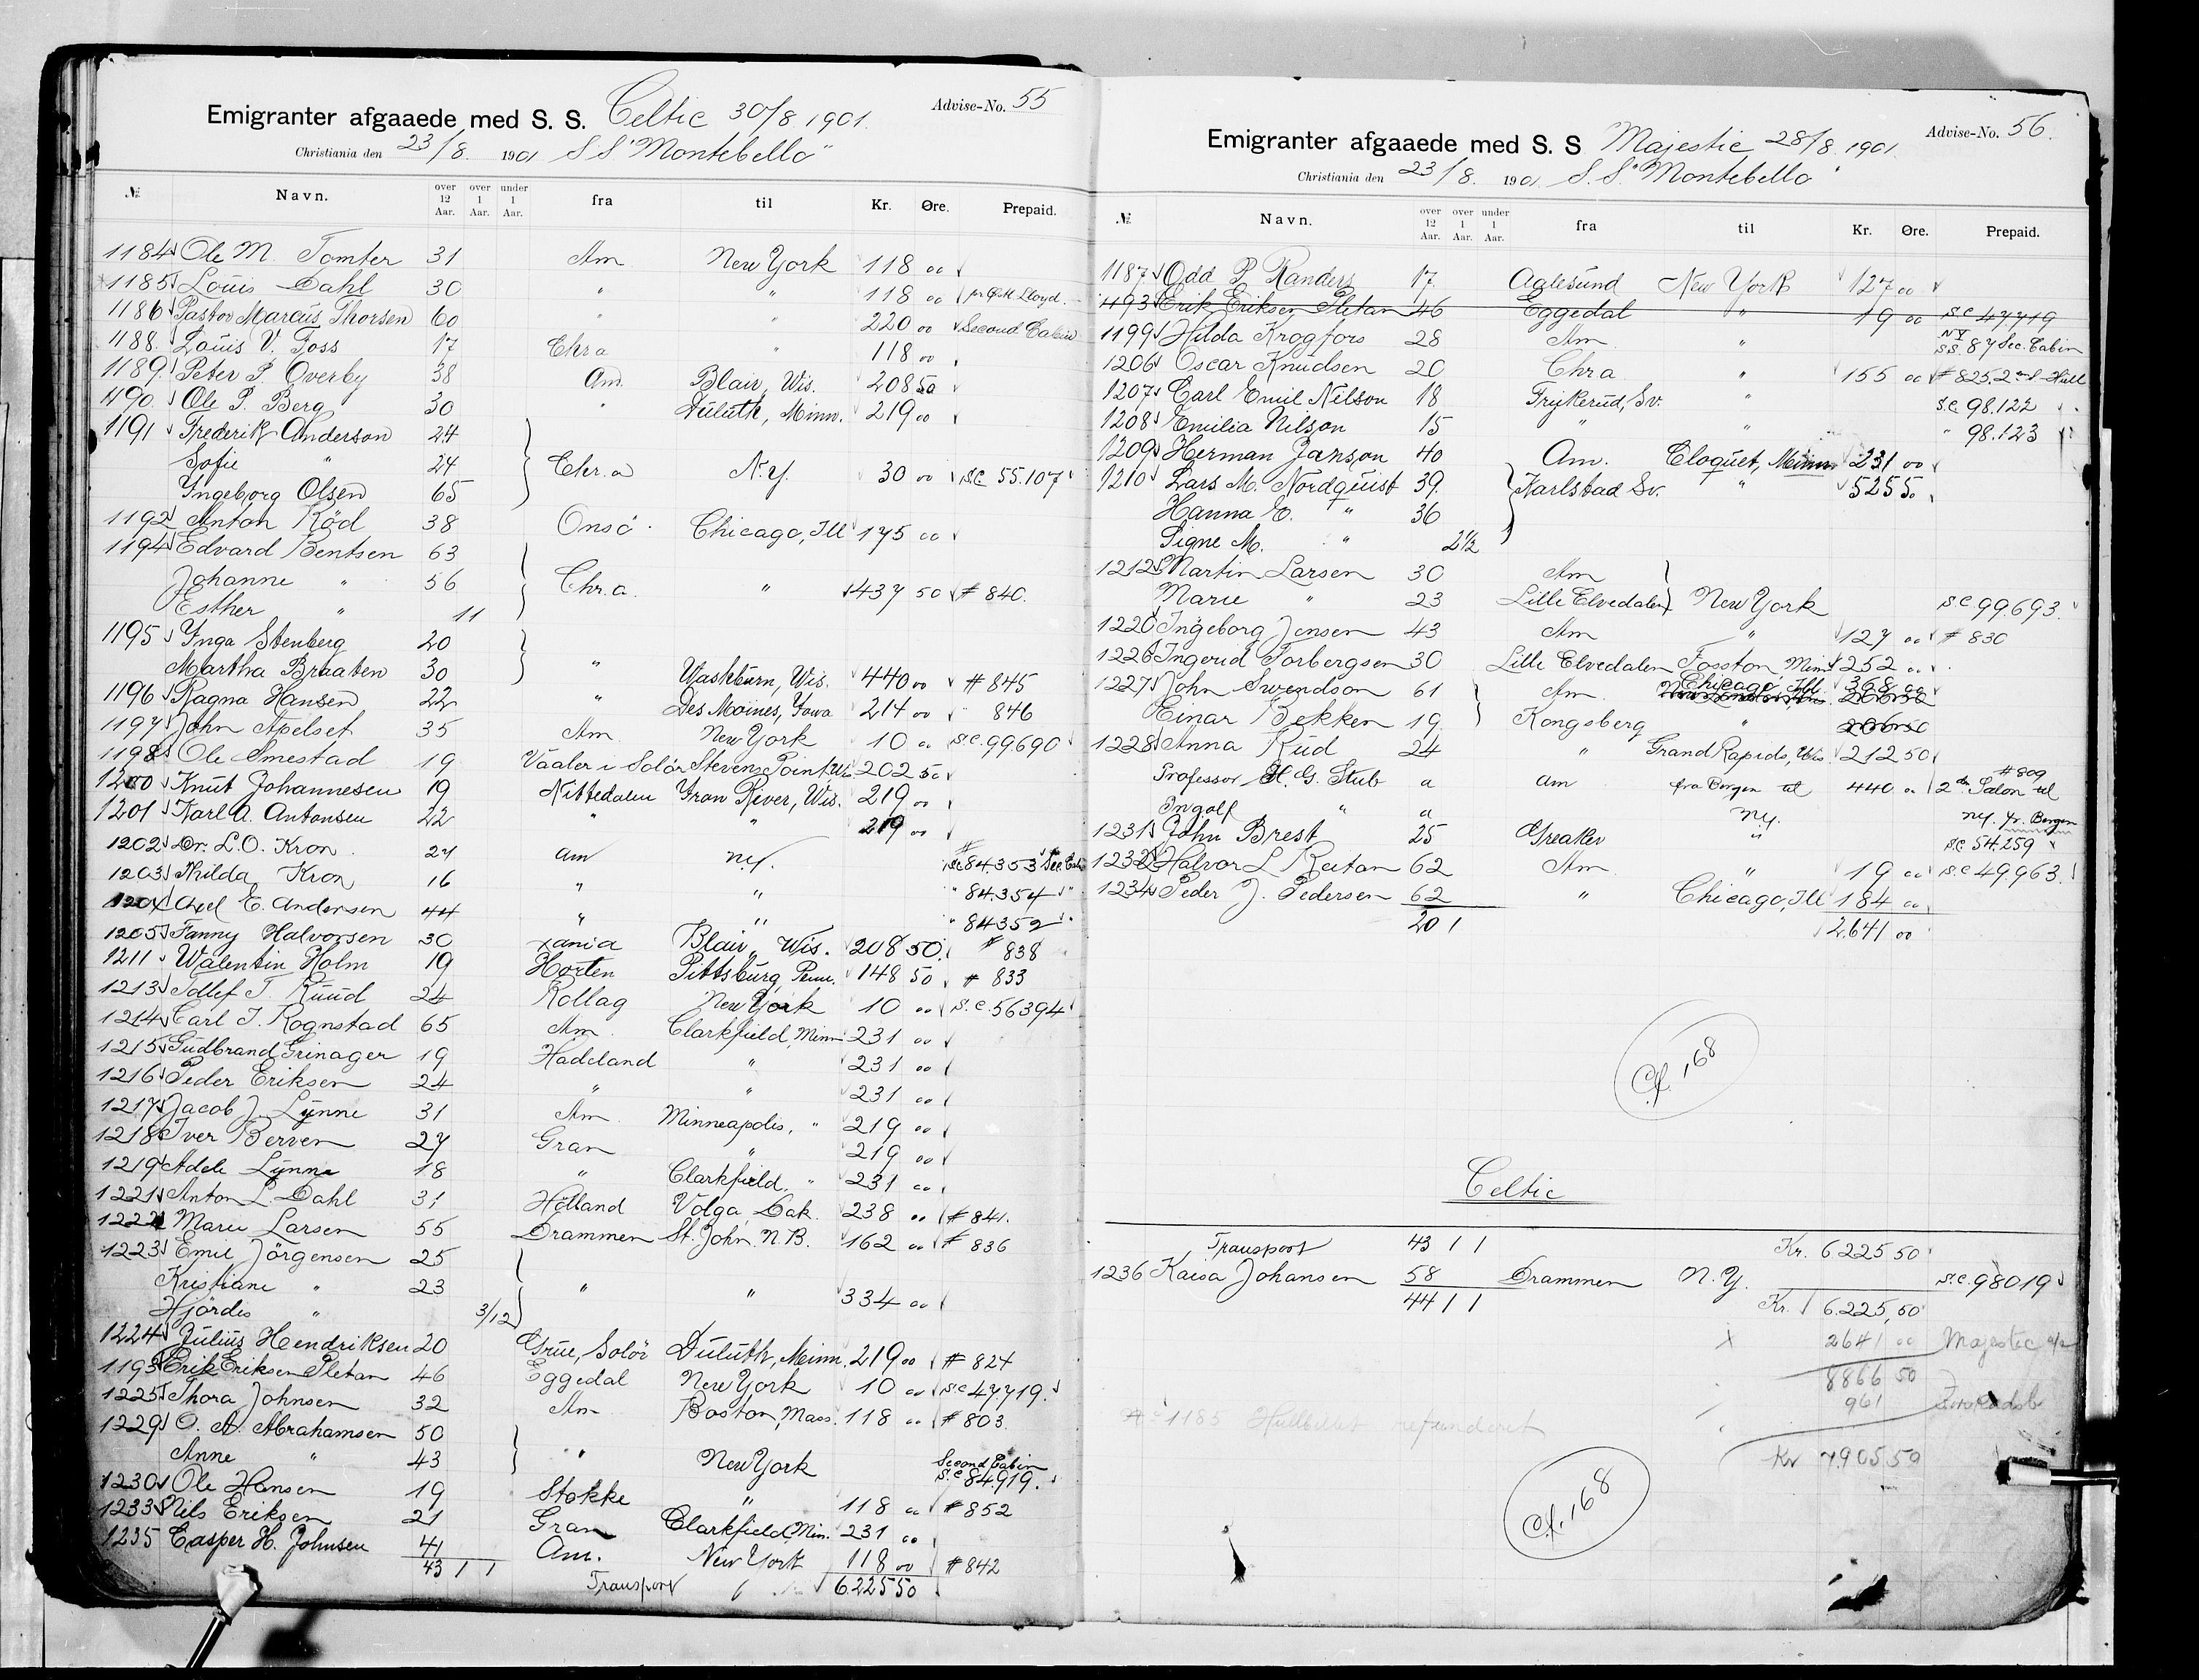 Advise-No. 55
Emigranter afgaaede med S. S. Celtic 30/8 1901.
Christiania den 23/8. 1901 S S "Montebello"
№ Navn. over 12 Aar. over 1 Aar. under 1 Aar. fra til Kr. Øre. Prepaid.
1184 Ole M. Tomter 31 Am New York 118 00
1185 Louis Dahl 30 " " 118 00 Lloyd.
1186 Pastor Marcus Thorsen 60 " " 220 00 Second Cabin
1188. Louis V. Foss 17 Chra " 118 00
1189 Peter P. Overby 38 Am. Blair, Wis. 208 50
1190 Ole P. Berg 30 " Duluth, Minn. 219 00
1191 Frederik Anderson 24
Sofie " 24 Chr.a N.Y. 30 00 S.C. 55.107
Yngeborg Olsen 65
1192 Anton Röd 38 Onsö. Chicago, Ill 175 00
1194 Edvard Bentsen 63
Johanne " 56 Chr.a. " 437 50 # 840.
Esther " 11
1195 Ynga Stenberg 20
Martha Braaten 30 " Washburn, Wis. 440 00 # 845
1196 Ragna Hansen 22 " Des Moines, Iowa 214 00 " 846
1197 John Apelset 35 Am New York 10 00 S.C. 99690
1198 Ole Smestad 19 Vaaler i Solör Stevens Point, Wis 202 50
1200 Knut Johannesen 19 Nittedalen Iron River, Wis. 219 00
1201 Karl A. Antonsen 22 " " 219 00
1202 Dr. L.O. Kron 24 am N.Y. # S.C. 84.353 Sec. Cabin
1203 Hilda Kron 16 " " " 84.354 "
1204 Axel E. Andersen 44 " " " 84352 "
1205 Fanny Halvorsen 30 Xania Blair, Wis. 208 50 # 838
1211 Walentin Holm 19 Horten Pittsburg, Penn. 148 50 # 833
1213 Tollef T. Ruud 24 Rollag New York 10 00 S.C. 56394
1214 Carl I. Rognstad 65 Am. Clarkfield, Minn 231 00
1215 Gudbrand Grinager 19 Hadeland " 231 00
1216 Peder Eriksen 24 " " 231 00
1217 Jacob J. Lynne 31 Am Minneapolis, " 219 00
1218 Iver Berven 27 Gran " 219 00
1219 Adele Lynne 18 " Clarkfield, " 231 00
1221 Anton L. Dahl 31 Hölland Volga, Dak. 238 00 # 841.
1222 Marie Larsen 55 Drammen St. John. N.B. 162 00 # 836
1223 Emil Jörgensen 25
Kristiane " 23 " " 334 00
Hjördis " 3/12
1224 Julius Hendriksen 20 Grue, Solör Duluth, Minn. 219 00 # 824
1193 Erik Eriksen Pletan 46 Eggedal New York 10 00 S.C. 47.719.
1225 Thora Johnsen 32 Am Boston, Mass. 118 00 # 803.
1229 O. A. Abrahamsen 50
Anne " 43 " New York Second Cabin S.C. 84.919.
1230 Ole Hansen 19 Stokke " 118 00 # 852
1233 Nils Eriksen 21 Gran Clarkfield, Min. 231 00
1235 Casper H. Johnsen 41 Am. New York 118 00 # 842
43 1 1 Transport 6.225 50
Advise-No. 56.
Emigranter afgaaede med S. S Majestic 28/8 1901.
Christiania den 23/8. 1901. S. S. "Montebello"
№ Navn. over 12 Aar. over 1 Aar. under 1 Aar. fra til Kr. Øre. Prepaid.
1187 Odd P. Randers 17 Aalesund New York 127 00
1193 Erik Eriksen Pletan 46 Eggedal " 19 00 S.C. 47719
1199 Hilda Krogfors 28 Am " NY S.S. 87 Sec. Cabin
1206 Oscar Knudsen 20 Chra " 155 00 # 825.2
1207 Carl Emil Nilson 18 Frykerud, Sv. " S.C. 98.122
1208 Emilia Nilson 15 " " " 98.123
1209 Herman Janson 40 Am. Cloquet, Minn 231 00
1210 Lars M. Nordquist 39. Karlstad Sv. " 525 50
Hanna E. " 36
Signe M. " 2½
1212 Martin Larsen 30 Am
Marie " 23 Lille Elvedalen New York S.C. 99693.
1220 Ingeborg Jensen 43 Am " 127 00 # 830
1226 Ingerid Torbergsen 30 Lille Elvedalen Fosston, Minn 252 00
1227 John Swendson 61 Am Chicago, Ill. 368 00
Einar Bekken 19 Kongsberg " 206 50
1228 Anna Rud 24 " Grand Rapids, Wis. 212 50
Professor H. G. Stub a am fra Bergen til 440 00 # 809 2den Salon til
Ingolf " a N.Y. N.Y. fr. Bergen
1231 John Brest 25 Greaker " S.C. 54.259
1232 Halvor L Reitan 62 Am " 19 00 S.C. 49963.
1234 Peder J. Pedersen 62 " Chicago, Ill 184 00
20 1 2.641 00
Cf. 168
Celtic
Transport 43 1 1 Kr. 6.225,50
1236 Kaisa Johansen 58 Drammen N.Y. S.C. 98019
44 1 1 Kr. 6.225,50
X 2641 00 Majestic
8866 50
961
№ 1185 refunderet
Kr 7.905 50
Cf. 168